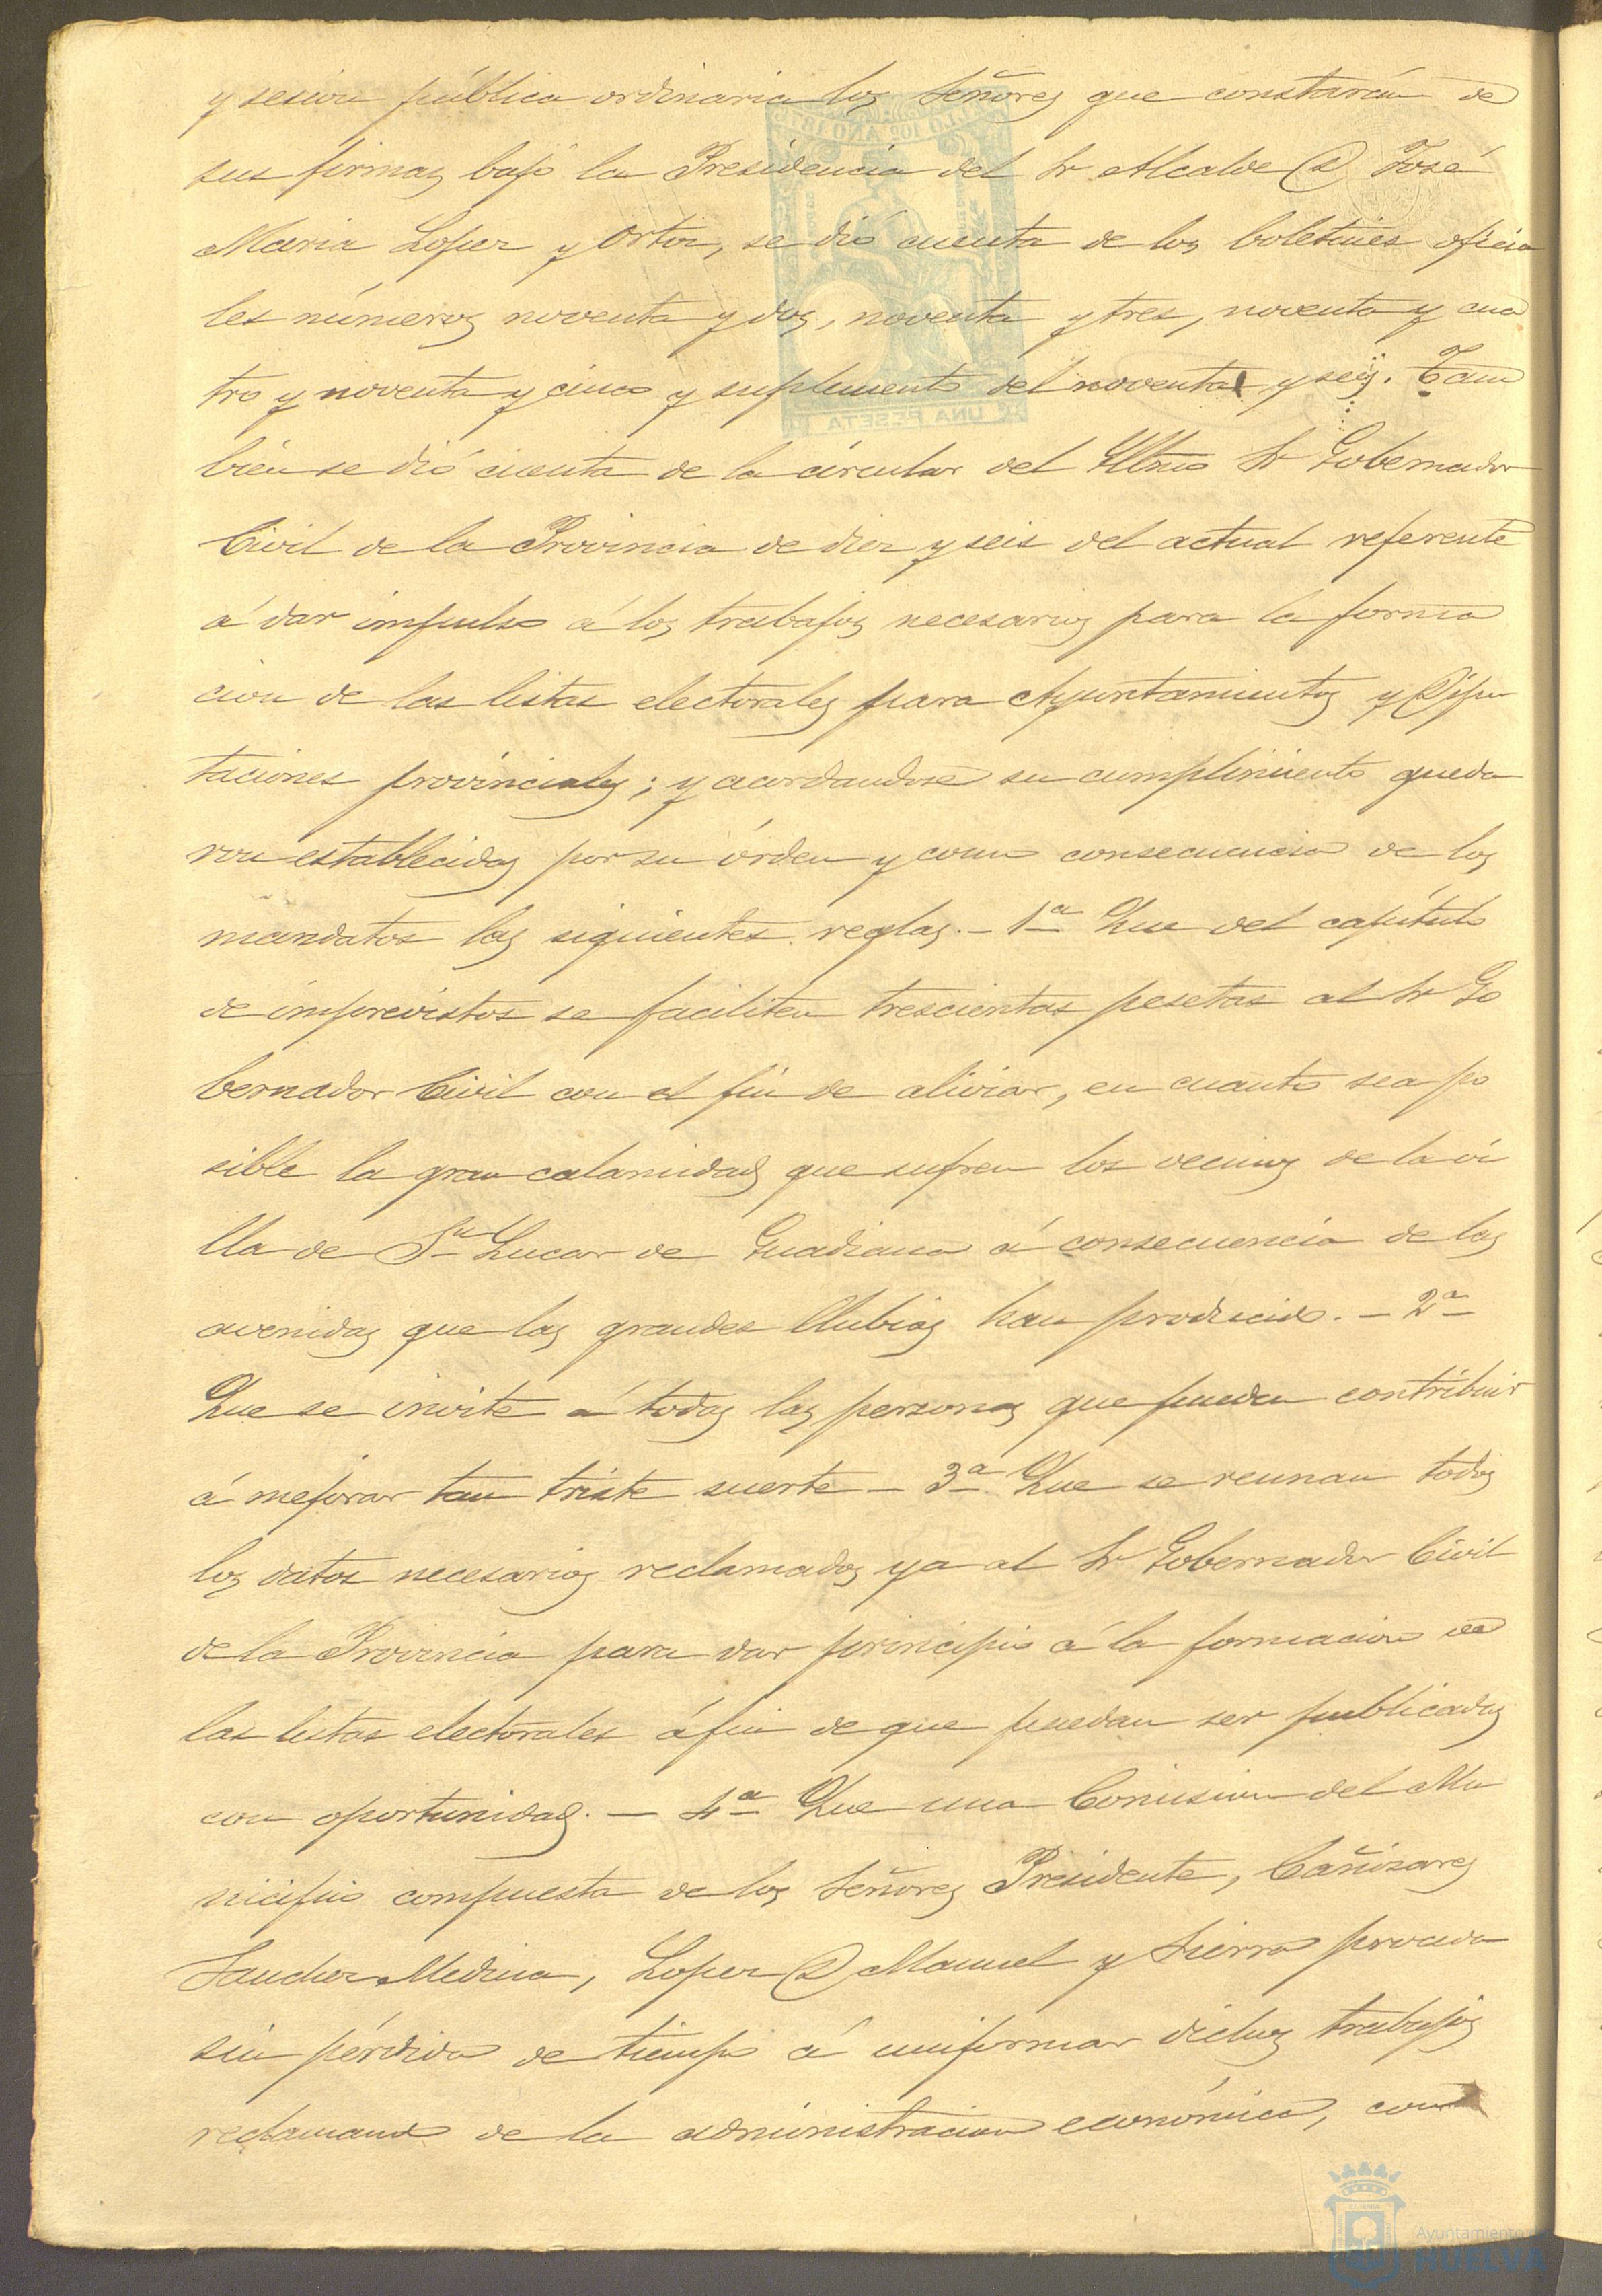 y sesion pública ordinaria los Señores que constarán de
sus firmas bajo la Presidencia del Sr Alcalde D José
Maria Lopez y Ortiz, se dió cuenta de los boletines oficia
les números noventa y dos, noventa y tres, noventa y cua
tro y noventa y cinco y suplemento del noventa y seis. Tam
bien se dió cuenta de la circular del Iltmo Sr Gobernador
Civil de la Provincia de diez y seis del actual referente
á dar impulso á los trabajos necesarios para la forma
cion de las listas electorales para Ayuntamientos y Dipu
taciones provinciales; y acordandose su cumplimiento queda
ron establecidas por su órden y como consecuencia de los
mandatos las siguientes reglas. - 1ª Que del capítulo
de imprevistos se faciliten trescientas pesetas al Sr Go
bernador Civil con el fin de aliviar, en cuanto sea po
sible la gran calamidad que sufren los vecinos de la vi
lla de Sn Lucar de Guadiana á consecuencia de las
avenidas que las grandes llubias han producido. - 2ª
Que se invite á todas las personas que pueden contribuir
á mejorar tan triste suerte - 3ª Que se reunan todos
los datos necesarios reclamados ya al Sr Gobernador Civil
de la Provincia para dar principio á la formacion de
las listas electorales á fin de que puedan ser publicadas
con oportunidad. - 4ª Que una Comision del Mu
nicipio compuesta de los Señores Presidente, Cañizares
Sanchez Medina, Lopez D Manuel y Sierra proceda
sin pérdida de tiempo á uniformar dichos trabajos
reclamando de la administracion económica, como
SELLO 10º AÑO 187
UNA PESETA
Ayuntamiento
HUELVA